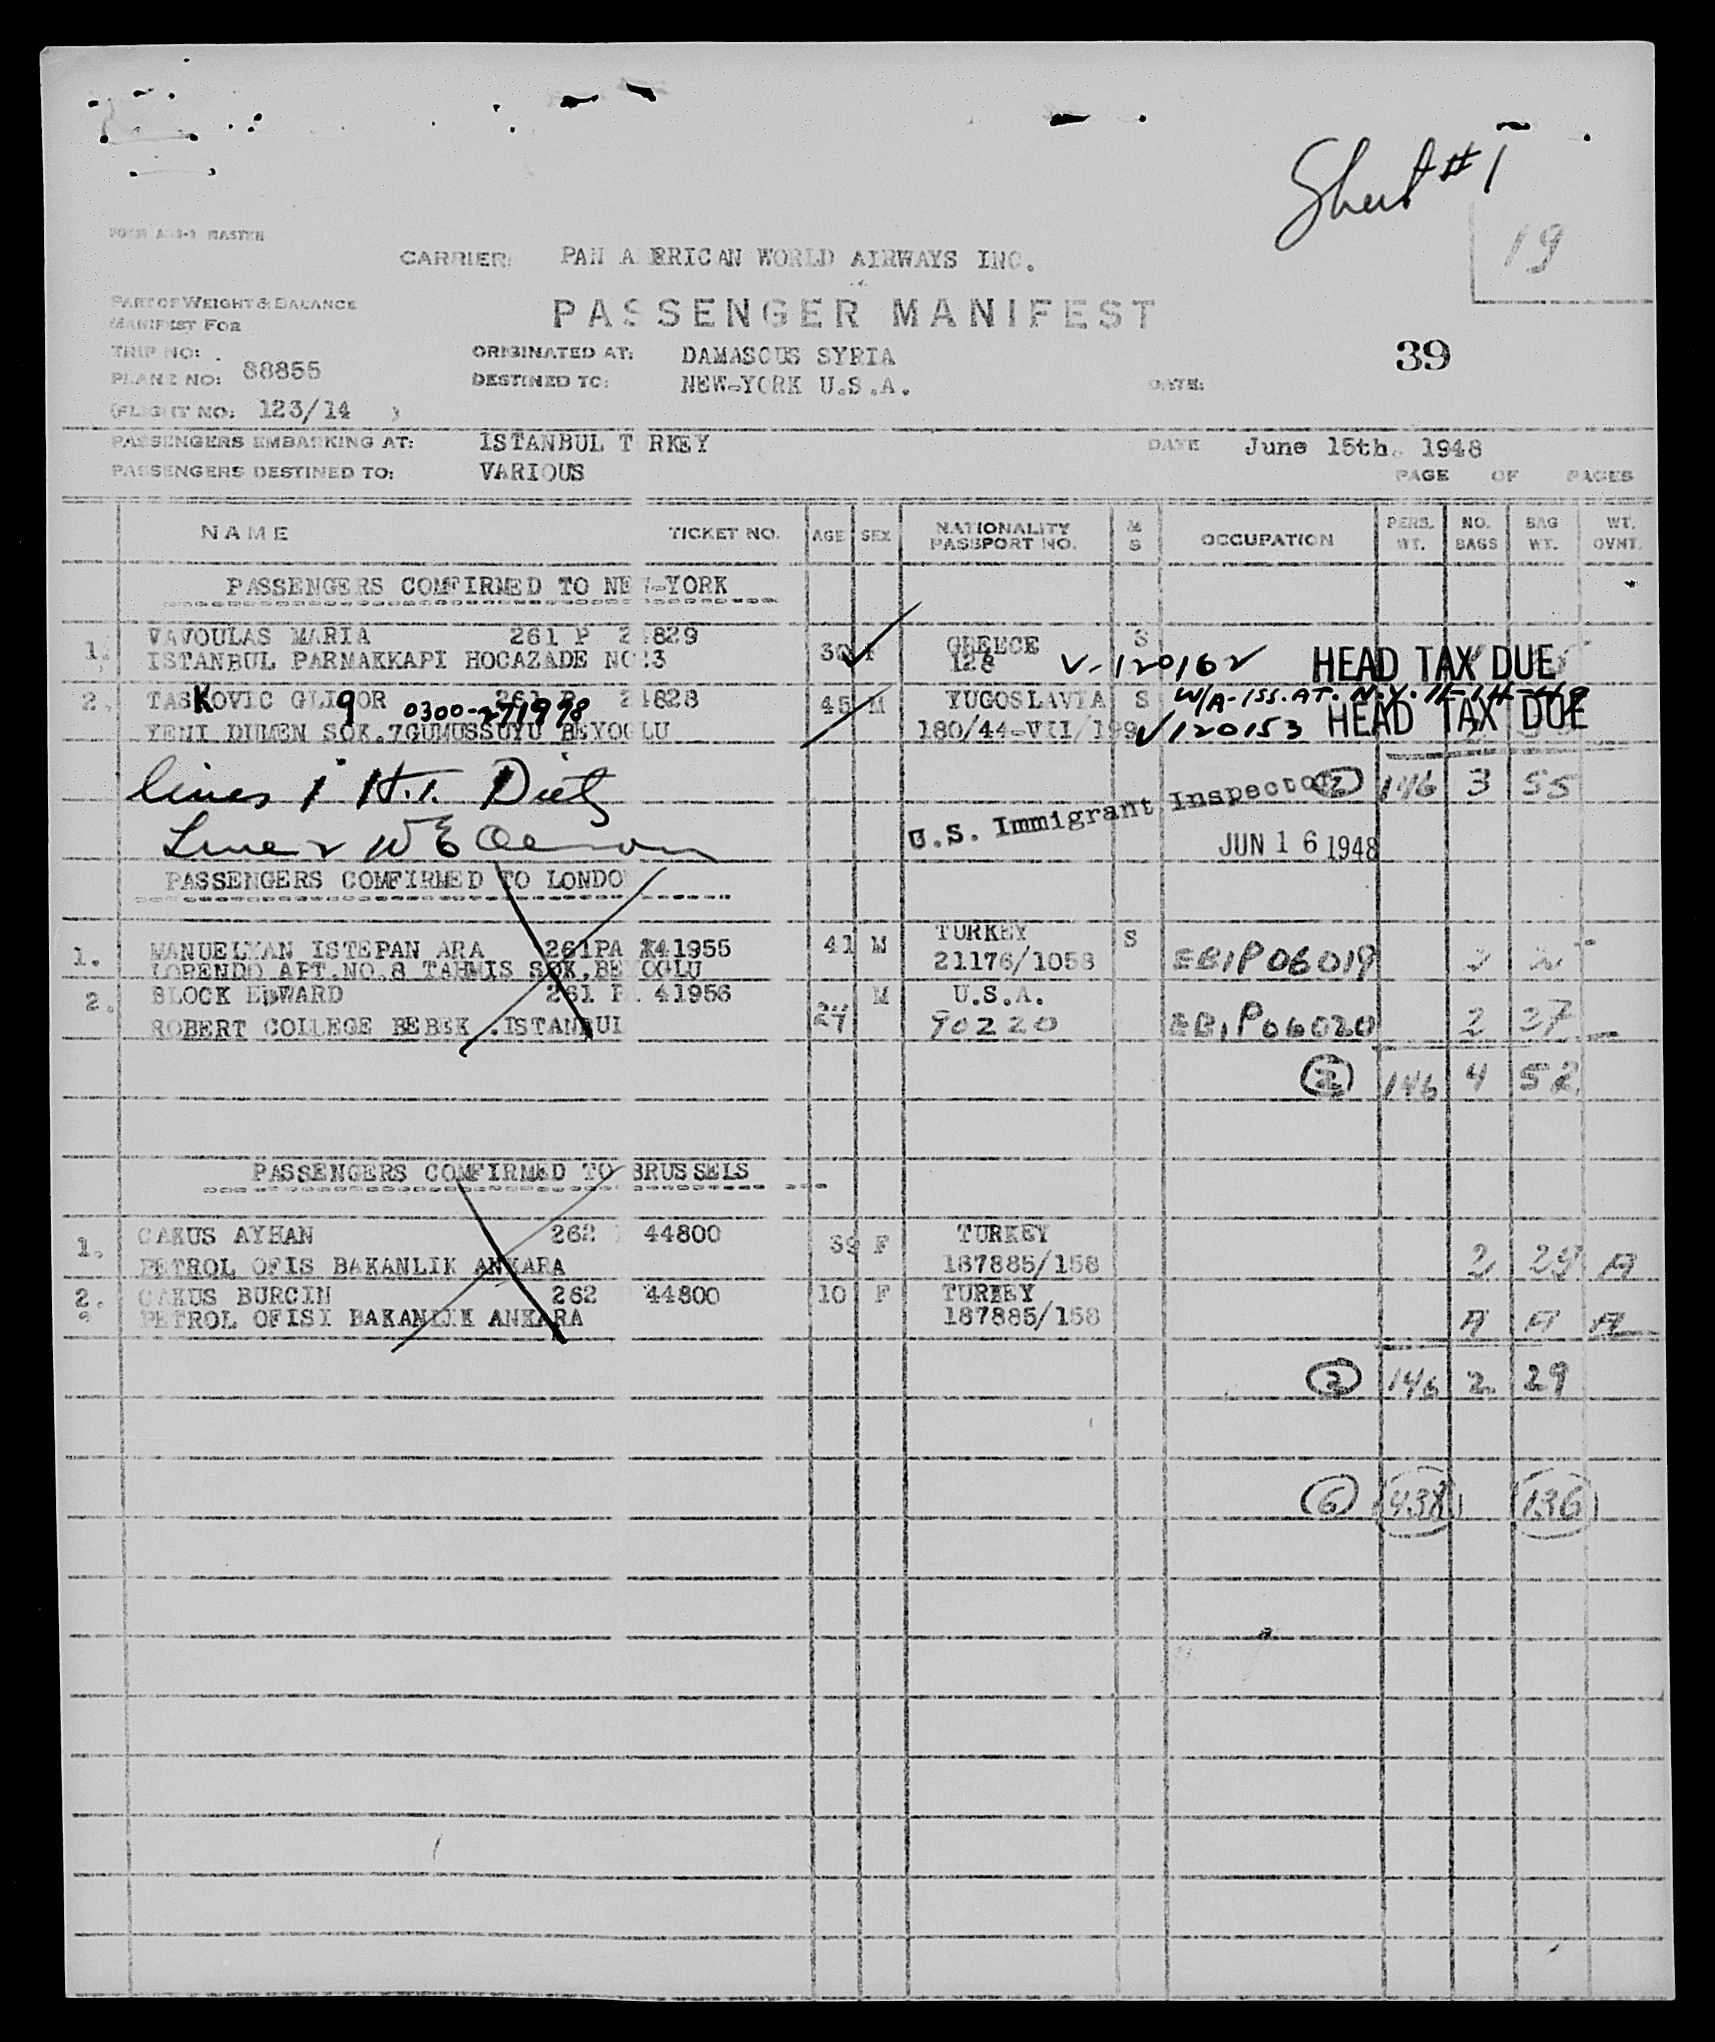 Sheet #1
19
CARRIER: PAN A ERICAN WORLD AIRWAYS INC.
PART OF WEIGHT & BALANCE
MANIFEST FOR
PASSENGER MANIFEST
TRIP NO:
PLANE NO: 88855
ORIGINATED AT: DAMASCUS SYRIA
39
DESTINED TO: NEW-YORK U.S.A.
DATE:
(FLIGHT NO: 123/14 )
PASSENGERS EMBARKING AT: ISTANBUL T RKEY
DATE June 15th. 1948
PASSENGERS DESTINED TO: VARIOUS
PAGE OF PAGES
NAME TICKET NO. AGE SEX NATIONALITY PASSPORT NO. M S OCCUPATION PERS. WT. NO. BAGS BAG WT. WT. OVNT.
PASSENGERS COMFIRMED TO NE -YORK
1. VAVOULAS MARIA 261 P 2 829 GREECE S
ISTANBUL PARMAKKAPI HOCAZADE NO:3 128 V-120162 HEAD TAX DUE
2. TASKOVIC GLIGOR 261 P 2 828 45 M YUGOSLAVIA S W/A-ISS. AT. N.Y. 11-14-49
0300-271998
YENI DUMEN SOK.7GUMUSSUYU BEYOGLU 180/44-VII/199 V120153 HEAD TAX DUE
lines 1 H.T. Dietz
2 146 3 55
U.S. Immigrant Inspector
Line 2 W E
JUN 16 1948
PASSENGERS COMFIRMED TO LONDO
1. MANUELYAN ISTEPAN ARA 261PA 41955 41 M TURKEY S
LORENDO APT.NO.8 TAHMIS SOK.BEYOGLU 21176/1058 EBIP06019 2 25
2. BLOCK EDWARD 261 P 41956 24 M U.S.A.
ROBERT COLLEGE BEBEK .ISTANBUL 90220 EBIP06020 2 27
2 146 4 52
PASSENGERS COMFIRMED TO BRUSSELS
1. CAKUS AYHAN 262 44800 39 F TURKEY
PETROL OFIS BAKANLIK ANKARA 187885/158 2 29 A
2. CAKUS BURCIN 262 44800 10 F TURKEY
PETROL OFISI BAKANLIK ANKARA 187885/158 A A A
2 146 2 29
6 438 136